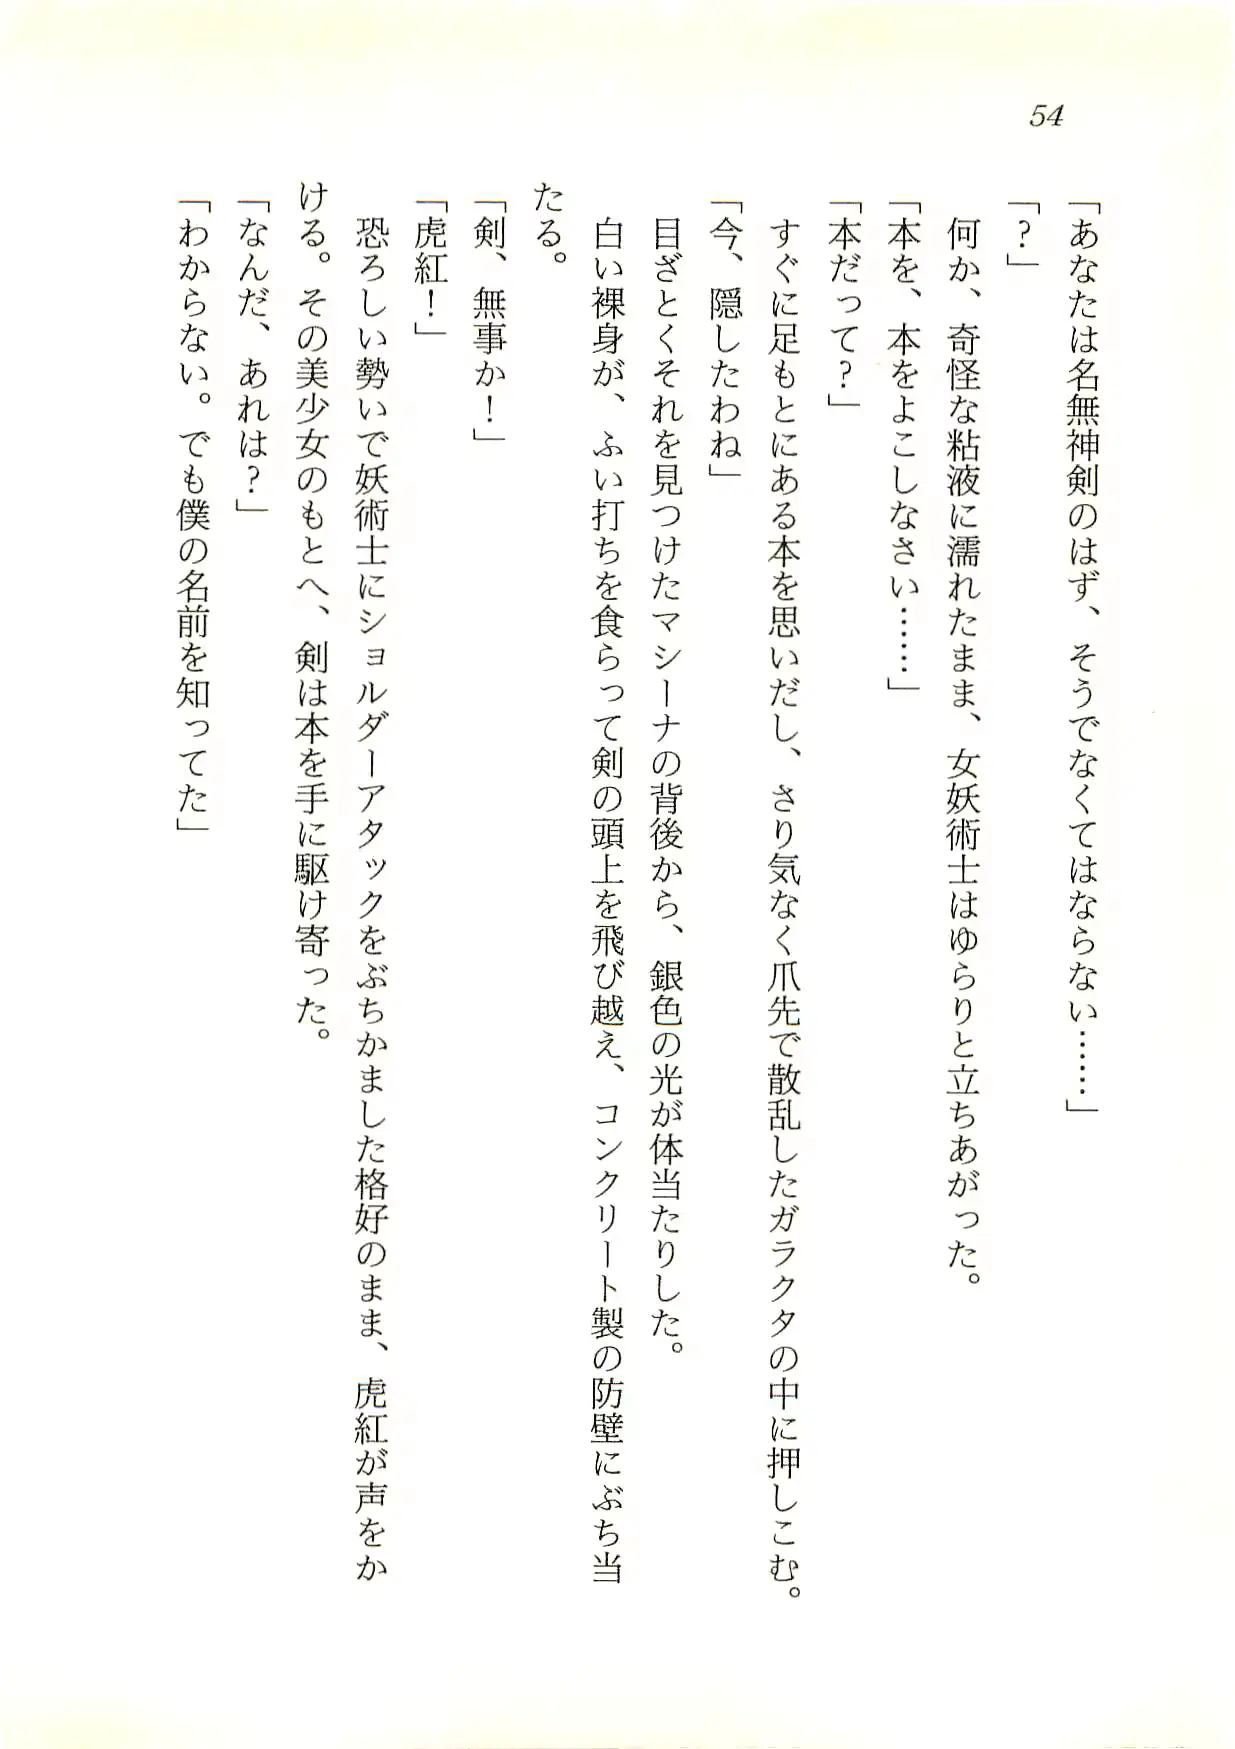 54
「あなたは名無神剣のはず、そうでなくてはならない……」
「？」
何か、奇怪な粘液に濡れたまま、女妖術士はゆらりと立ちあがった。
「本を、本をよこしなさい……」
「本だって？」
すぐに足もとにある本を思いだし、さり気なく爪先で散乱したガラクタの中に押しこむ。
「今、隠したわね」
目ざとくそれを見つけたマシーナの背後から、銀色の光が体当たりした。
白い裸身が、ふい打ちを食らって剣の頭上を飛び越え、コンクリート製の防壁にぶち当
たる。
「剣、無事か！」
「虎紅！」
恐ろしい勢いで妖術士にショルダーアタックをぶちかました格好のまま、虎紅が声をか
ける。その美少女のもとへ、剣は本を手に駆け寄った。
「なんだ、あれは？」
「わからない。でも僕の名前を知ってた」